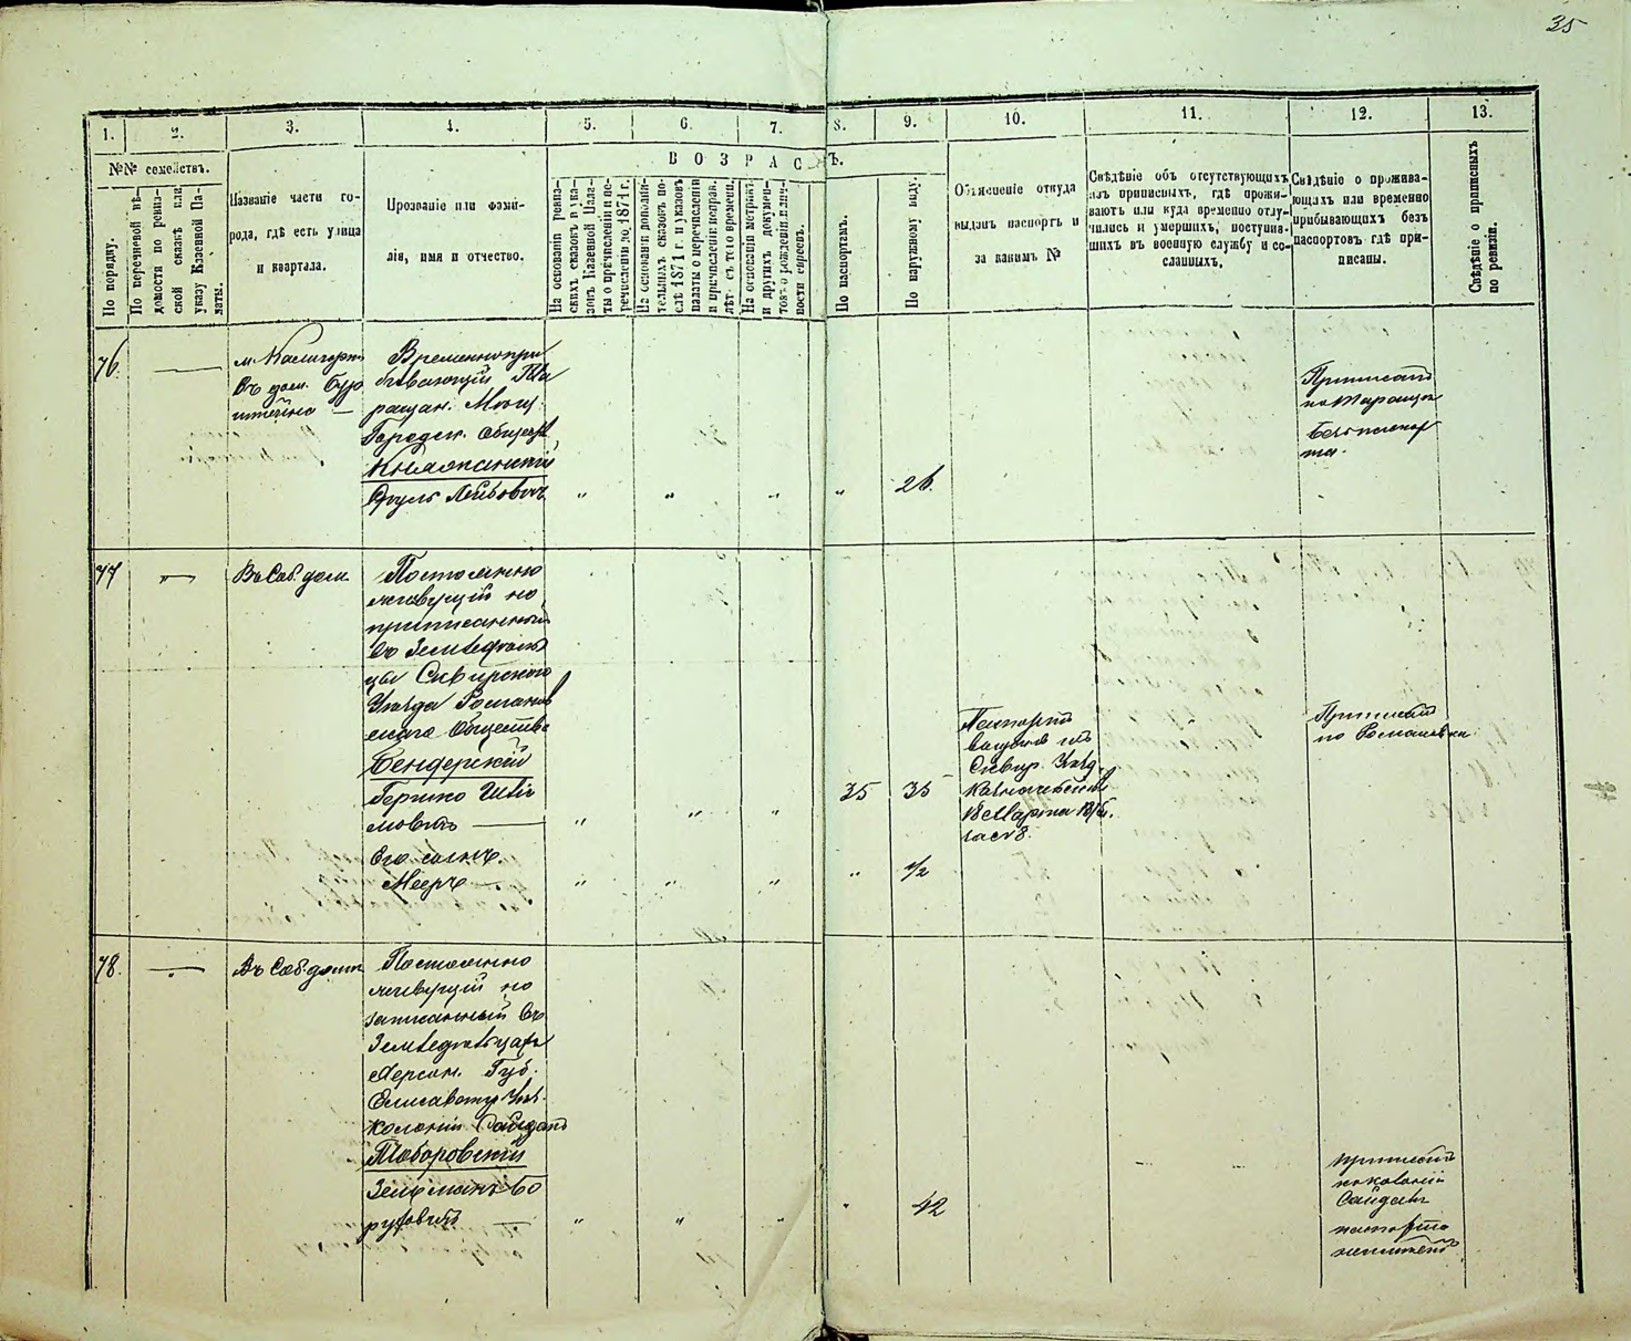 35
1. 2. 3. 4. 5. 6. 7. 8. 9. 10. 11. 12. 13.
№№ семействъ.
По порядку.
По перечневой вѣ-
домости по ревиз-
ской сказкѣ или
указу Казенной Па-
латы.
Названіе части го-
рода, гдѣ есть улица
и квартала.
Прозваніе или фами-
лія, имя и отчество.
ВОЗРАСТЪ.
На основаніи ревиз-
скихъ сказокъ и ука-
зовъ Казенной Пала-
ты о причисленіи и пе-
речисленіи до 1871 г.
На основаніи дополни-
тельныхъ сказокъ по-
слѣ 1871 г. и указовъ
палаты о перечисленіи
и причисленіи исправ.
лѣт. съ того времени.
На основаніи метрикъ
и другихъ докумен-
товъ о рожденіи
ности евреевъ.
По паспортамъ.
По наружному виду.
Объясненіе откуда
выданъ паспортъ и
за какимъ №
Свѣдѣніе объ отсутствующихъ
изъ приписныхъ, гдѣ прожи-
ваютъ или куда временно отлу-
чились и умершихъ, поступив-
шихъ въ военную службу и со-
сланныхъ.
Свѣдѣніе о прожива-
ющихъ или временно
прибывающихъ безъ
паспортовъ гдѣ при-
писаны.
Свѣдѣніе о приписныхъ
по ревизіи.
76.
въ дом.
Временно при
бывающій Та
ращан. Мѣщ.
Городск. Общест.
Лейбовичъ
26.
Приписанъ
по Таращи
безъ паспор
та.
77
Въ Соб. дом.
Постоянно
живущій но
приписанный
въ Земледѣль
цы Сквирскаго
Уѣзда Романов
скаго Общества
Бендерскій
Гершко
мовичъ
35 35
Паспортъ
выданъ изъ
Сквир. Уѣзд.
Казначейства
18 Марта
за № 8.
Приписанъ
по Романовки
Его сынъ
Мееръ
1/2
78.
Въ Соб. домѣ
Постоянно
живущій но
записанный въ
Земледѣльцахъ
Херсон. Губ.
Елисаветгр. Уѣз.
колоніи Сайдакъ
Таборовскій
Зельманъ Бо
руховичъ
42
приписанъ
по колоніи
Сайдакъ
паспорта
неимѣетъ